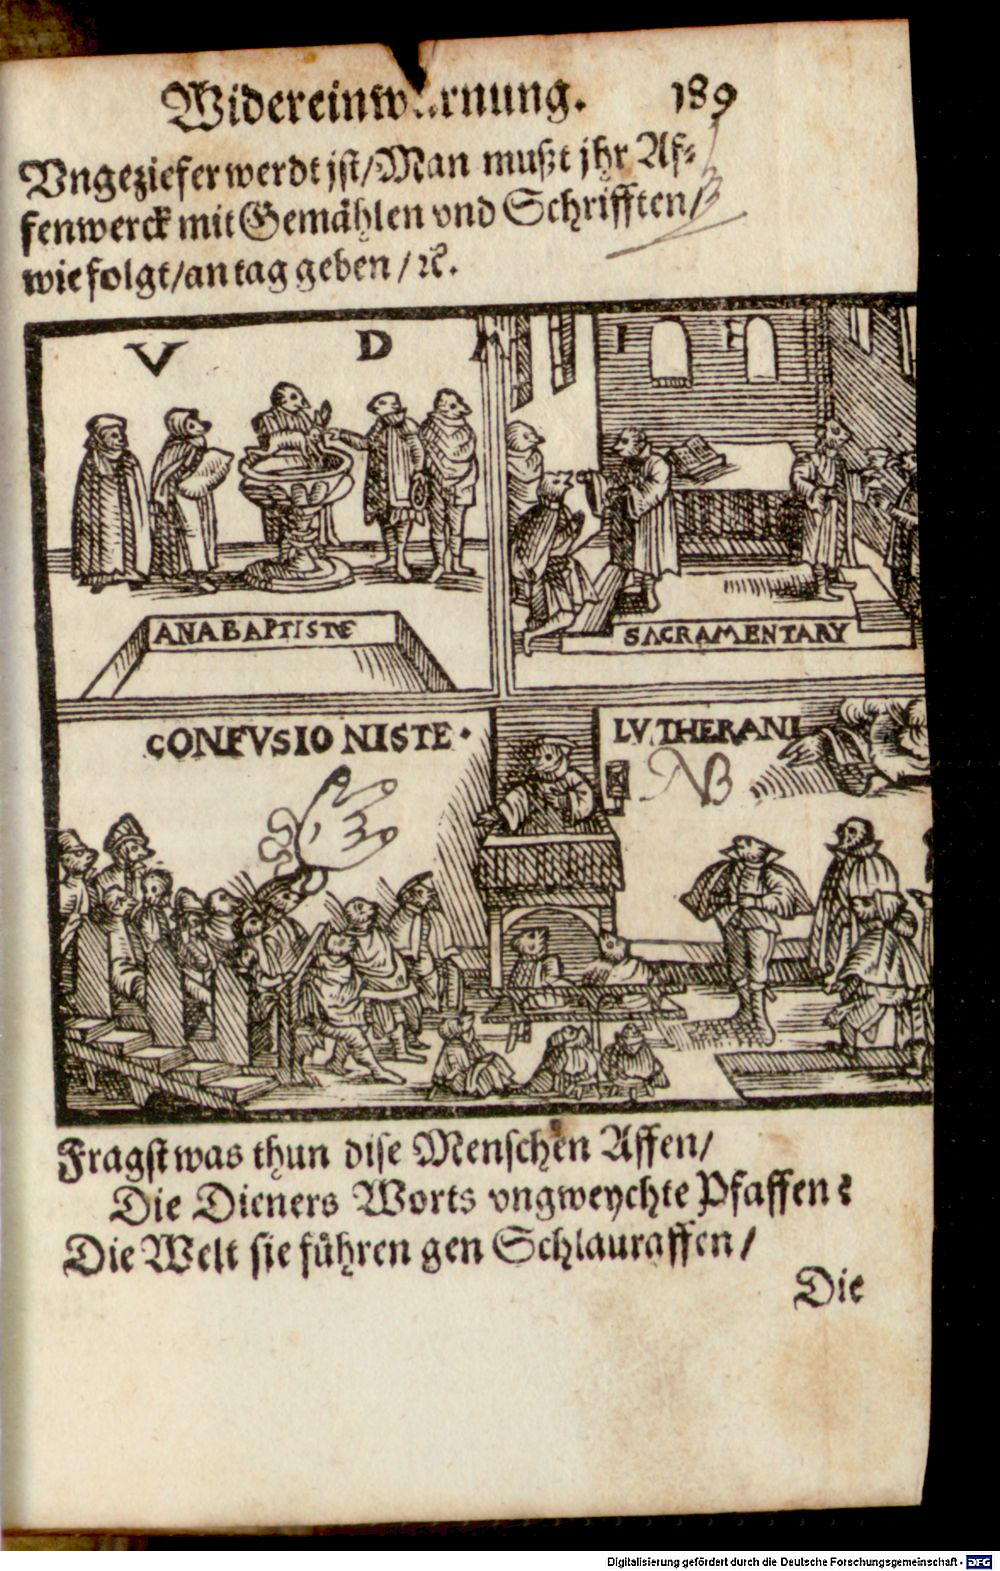 Widereinwarnung. 189
Vngeziefer werdt jst/Man mußt jhr Af⸗
fenwerck mit Gemählen vnd Schrifften/
wie folgt/an tag geben/ꝛc.
V D M I E
ANABAPTISTE
SACRAMENTARY
CONFVSIONISTE·
LVTHERANI
NB
Fragst was thun dise Menschen Affen/
Die Dieners Worts vngweychte Pfaffen?
Die Welt sie führen gen Schlauraffen/
Die
Digitalisierung gefördert durch die Deutsche Forschungsgemeinschaft - DFG